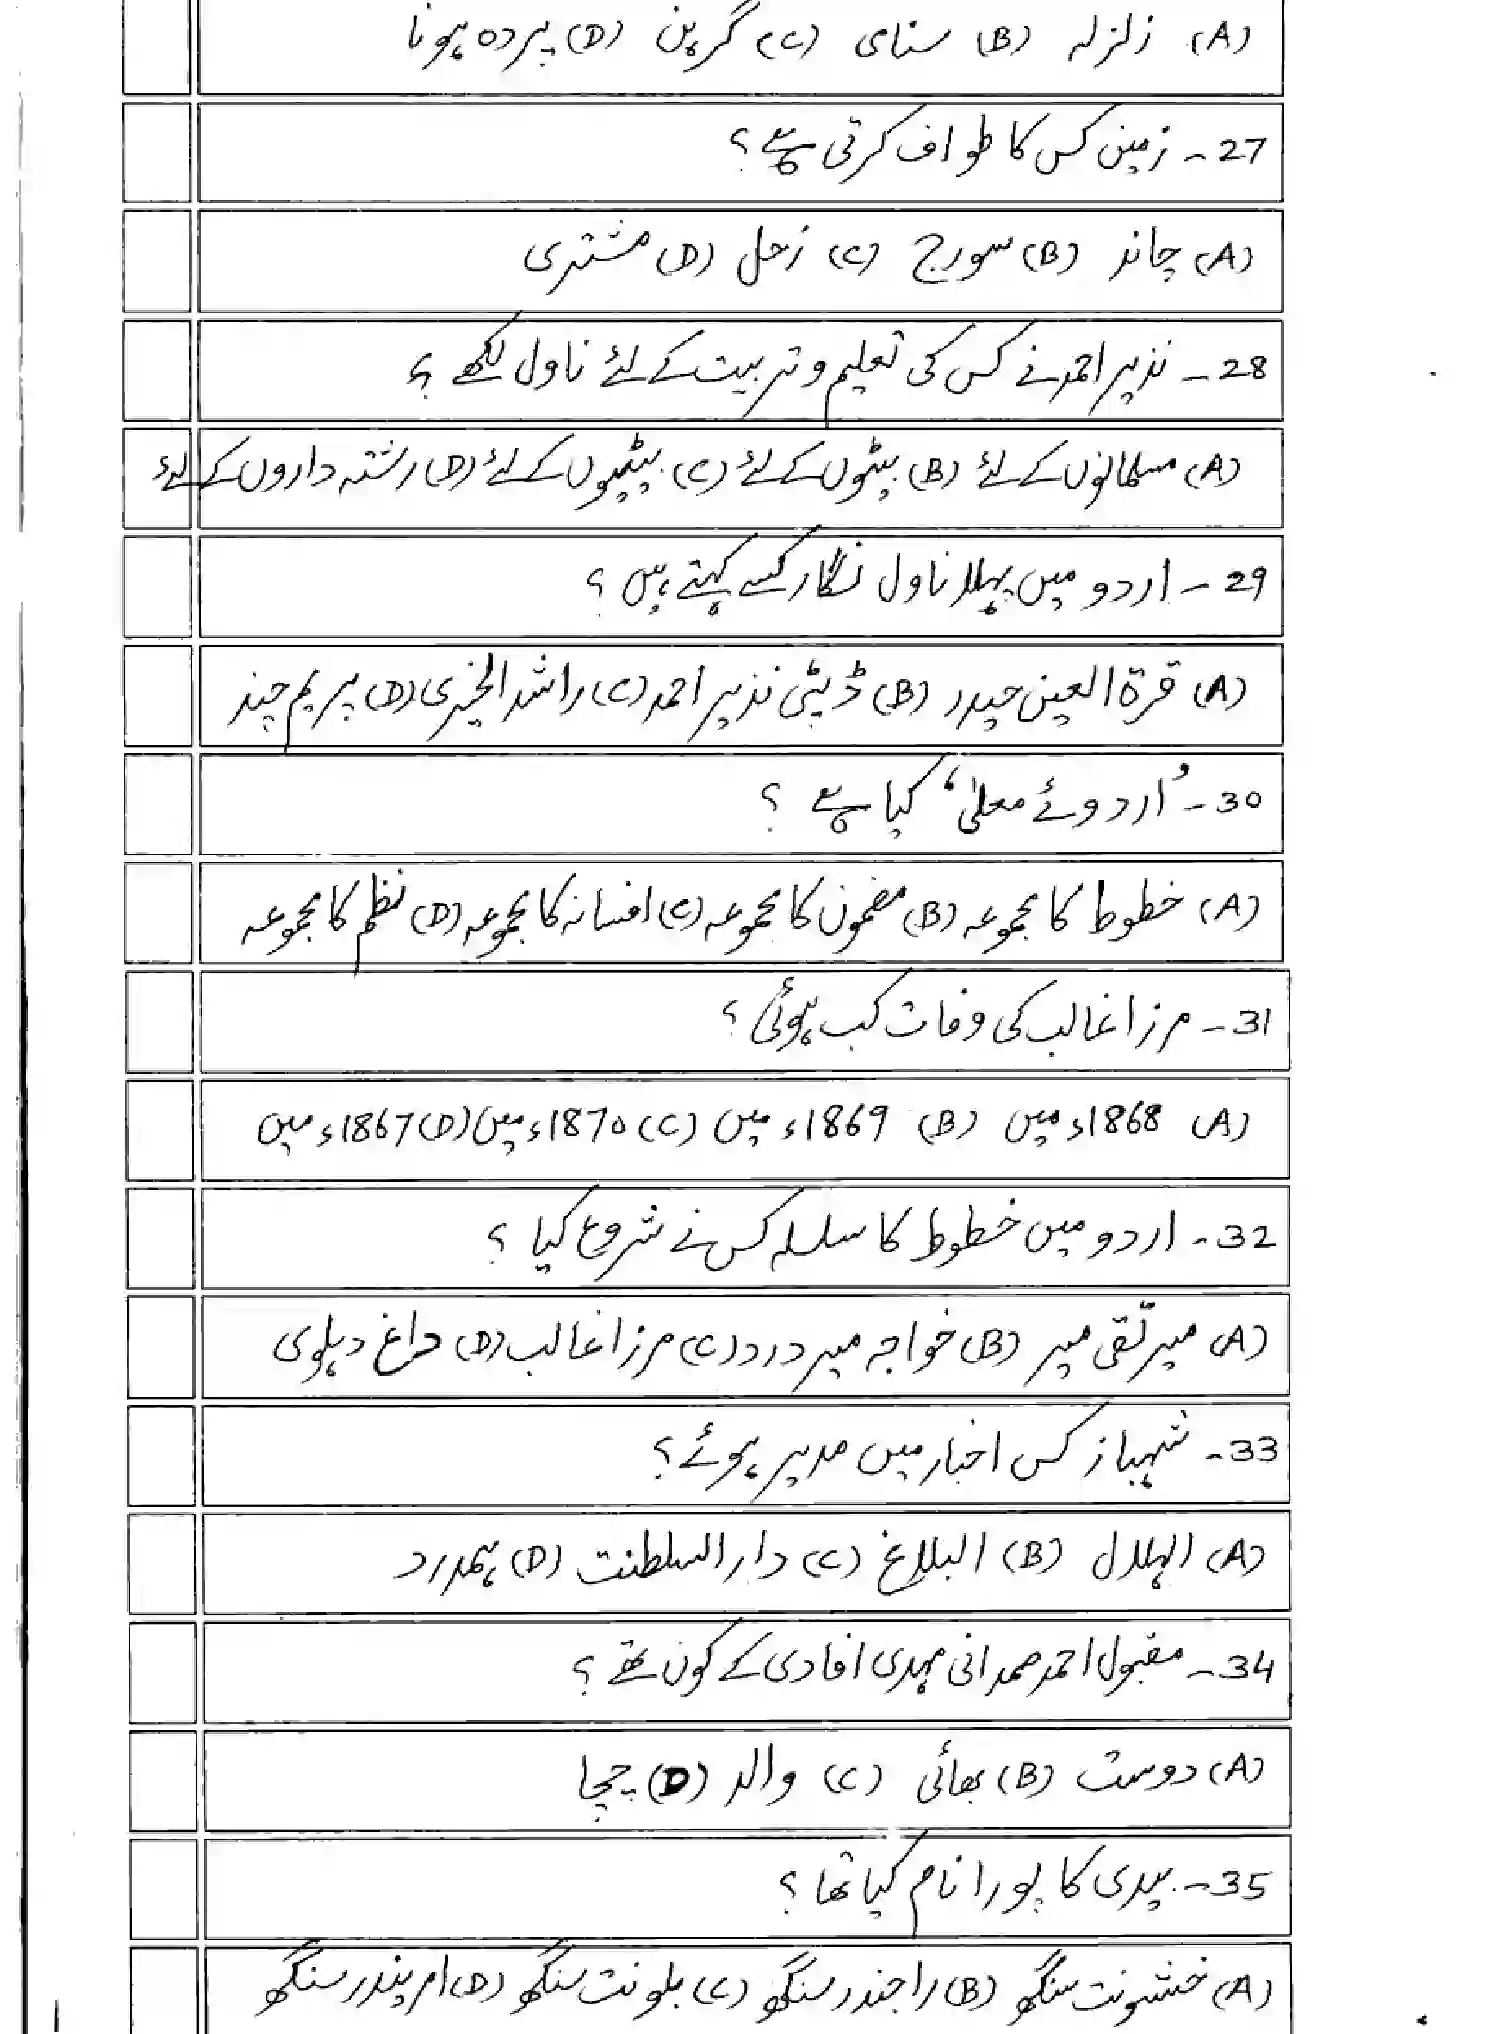 (A) زلزلہ (B) سنامی (C) گرہن (D) پردہ ہونا
27- زمین کس کا طواف کرتی ہے؟
(A) چاند (B) سورج (C) زحل (D) مشتری
28- نذیر احمد نے کس کی تعلیم و تربیت کے لئے ناول لکھے ؟
(A) مسلمانوں کے لئے (B) بیٹوں کے لئے (C) بیٹیوں کے لئے (D) رشتہ داروں کے لئے
29- اردو میں پہلا ناول نگار کسے کہتے ہیں ؟
(A) قرۃ العین حیدر (B) ڈپٹی نذیر احمد (C) راشد الخیری (D) پریم چند
30- ’اردوئے معلیٰ‘ کیا ہے ؟
(A) خطوط کا مجموعہ (B) مضمون کا مجموعہ (C) افسانہ کا مجموعہ (D) نظم کا مجموعہ
31- مرزا غالب کی وفات کب ہوئی ؟
(A) 1868ء میں (B) 1869ء میں (C) 1870ء میں (D) 1867ء میں
32- اردو میں خطوط کا سلسلہ کس نے شروع کیا ؟
(A) میر تقی میر (B) خواجہ میر درد (C) مرزا غالب (D) داغ دہلوی
33- شہباز کس اخبار میں مدیر ہوئے ؟
(A) الہلال (B) البلاغ (C) دار السلطنت (D) ہمدرد
34- مقبول احمد صمدانی مہدی افادی کے کون تھے ؟
(A) دوست (B) بھائی (C) والد (D) چچا
35- بیدی کا پورا نام کیا تھا ؟
(A) خشونت سنگھ (B) راجندر سنگھ (C) بلونت سنگھ (D) امریندر سنگھ